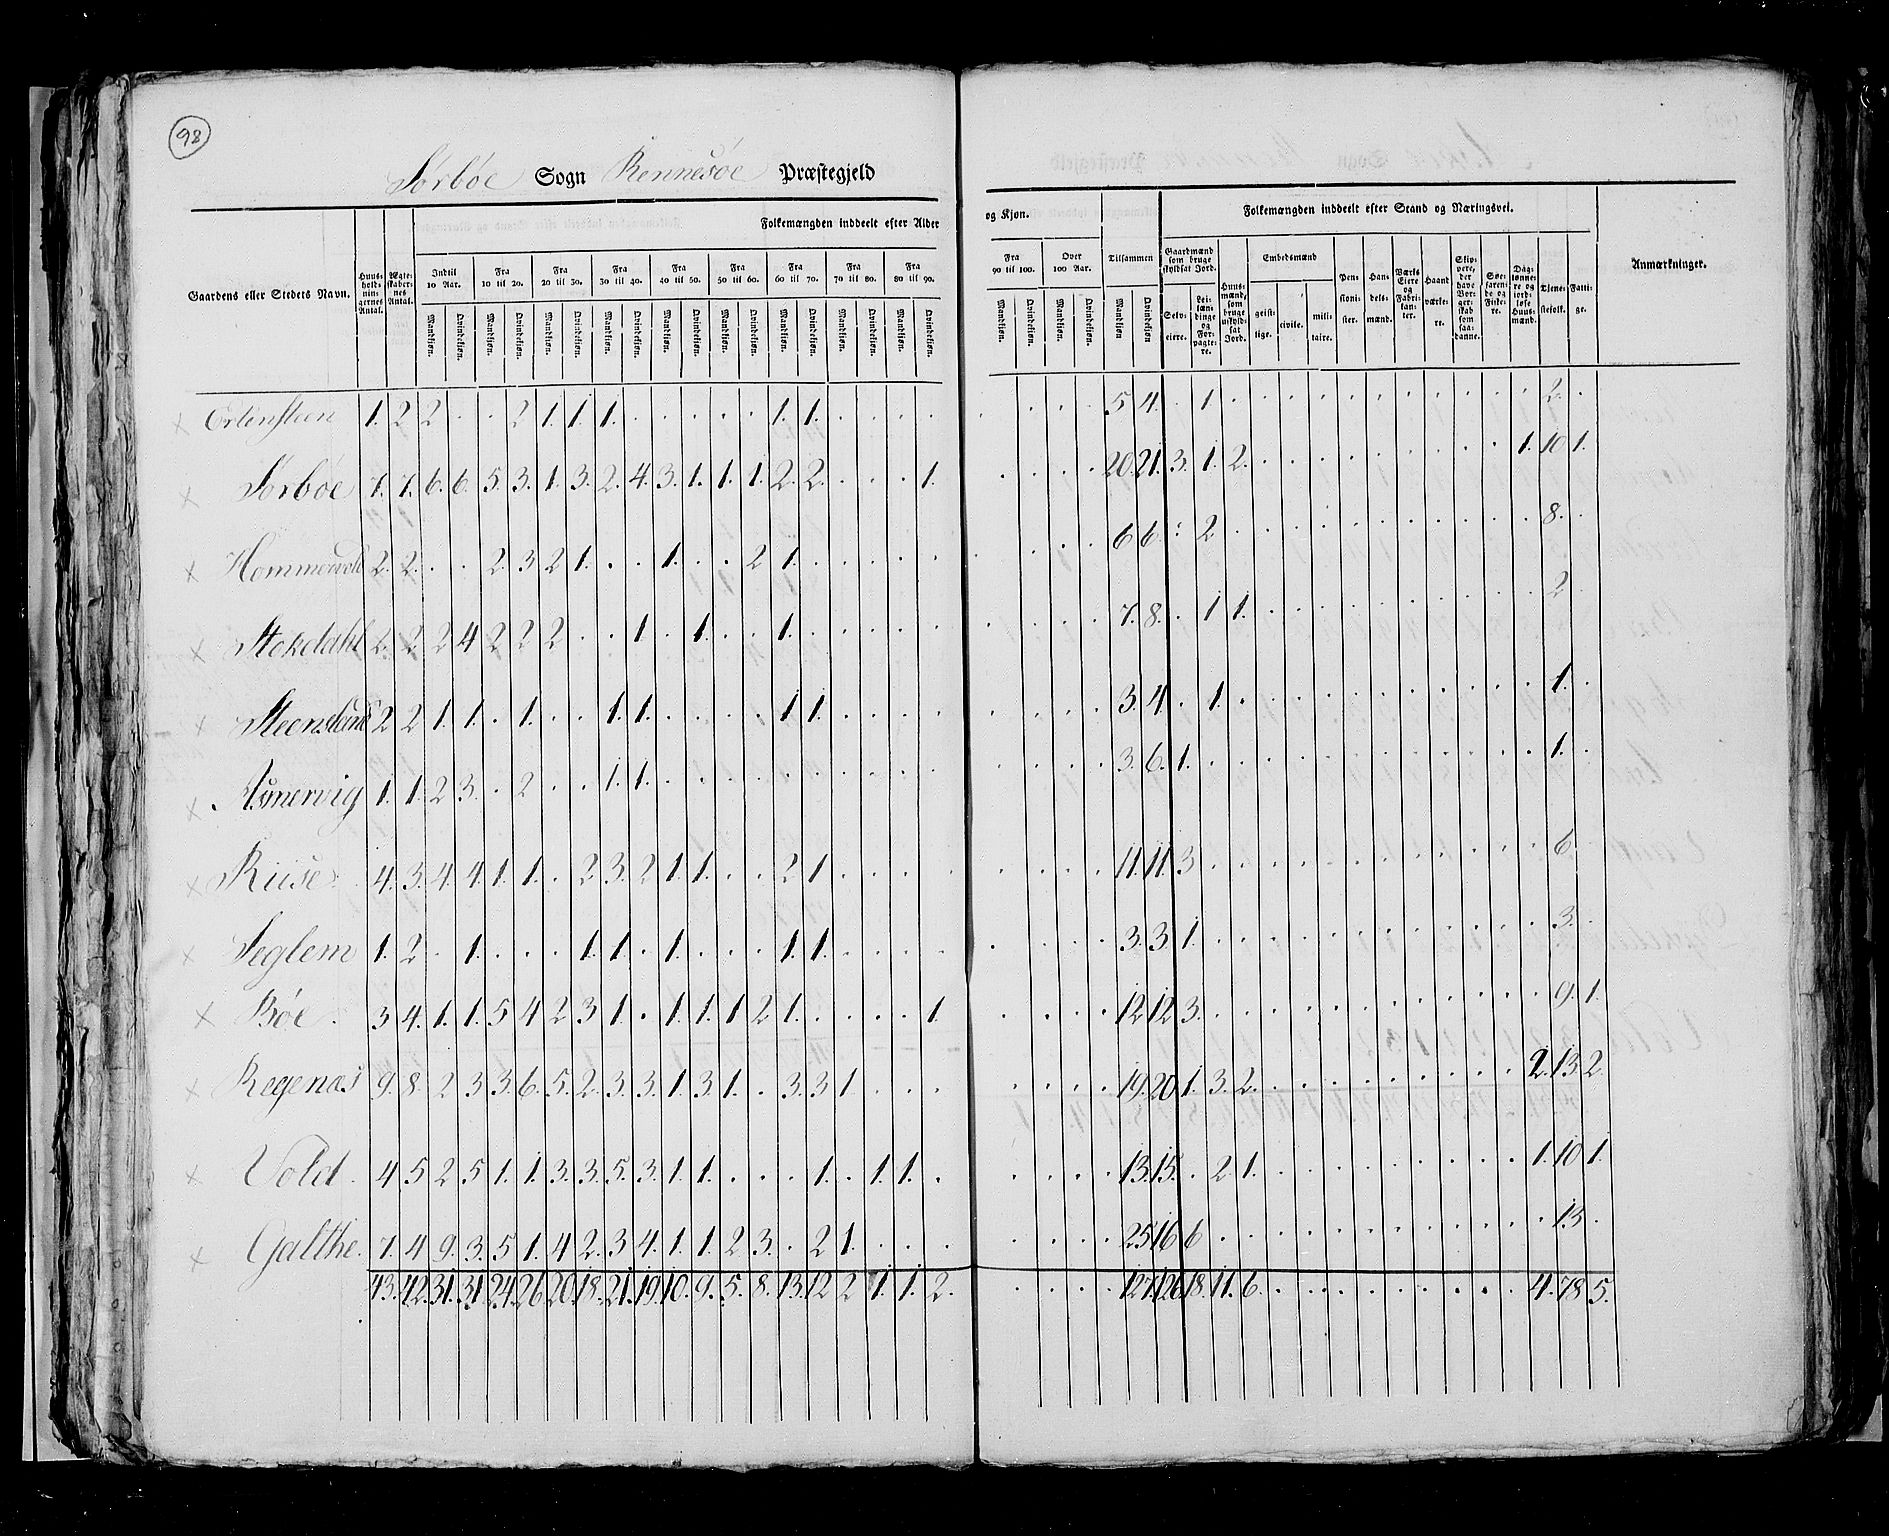 98
Sørbøe Sogn Rennesøe Præstegjeld
Gaardens eller Stedets Navn. | Huusholdningernes Antal. | Ægteskabernes Antal. | Folkemængden inddeelt efter Alder og Kjøn. | Tilsammen | Folkemængden inddeelt efter Stand og Næringsvei. | Anmærkninger.
Indtil 10 Aar. | Fra 10 til 20. | Fra 20 til 30. | Fra 30 til 40. | Fra 40 til 50. | Fra 50 til 60. | Fra 60 til 70. | Fra 70 til 80. | Fra 80 til 90. | Fra 90 til 100. | Over 100 Aar.
Mandkjøn. | Qvindekjøn.
Gaardmænd som bruge skyldsat Jord. | Selveiere. | Leilændinge og Forpagtere. | Huusmænd, som bruge uskyldsat Jord. | Embedsmænd | geistlige. | civile. | militaire. | Pensionister. | Handelsmænd. | Værks Eiere og Fabrikanter. | Haandværkere. | Skippere, der have Borgerskab som saadanne. | Søefarende og Fiskere. | Daglønnere og jordløse Huusmænd. | Tjenestefolk. | Fattige.
1. 2 2 . . 2 1. 1. 1. . . . . . 1. 1. . . . . . . . . 5 4. . 1. . . . . . . . . . . . 2. .
Sørbøe 7. 7. 6. 6. 5. 3. 1. 3. 2. 4. 3. 1. 1. 1. 2. 2. . . . 1. . . . . 20. 21. 3. 1. 2. . . . . . . . . . 1. 10 1.
2. 2. . . 2. 3 2 1. . . 1. . . 2 1. . . . . . . . . . 6 6. . 2 . . . . . . . . . . . 8. .
Stokdahl 2. 2. 2 4 2 2 2 . . 1. . 1. . . 1. . . . . . . . . . 7. 8. . 1 1. . . . . . . . . . . 2 .
2 2 1. 1. . 1. . . 1. 1. . . . . 1 1. . . . . . . . . 3. 4. . 1. . . . . . . . . . . . 1. .
Asmervig 1. 1. 2 3. . 2 . . 1. 1. . . . . . . . . . . . . . . 3. 6. 1. . . . . . . . . . . . . 1. .
Riise 4. 3. 4. 4. 1. 1. . 2 3. 2 1. 1. . . 2 1 . . . . . . . . 11. 11. 3 . . . . . . . . . . . . 6. .
Seglem 1. 2 . 1. . . . 1. 1. . 1. . . . 1. 1. . . . . . . . . 3. 3. 1. . . . . . . . . . . . . 3. .
Bøe. 3 4. 1. 1. 5 4 2 3 1. . 1. 1. 1 2 1. . . . . 1. . . . . 12 12 3. . . . . . . . . . . . . 9. 1.
Regenæs 9. 8. 2 3. 3. 6. 5. 2. 3. 3. 1. 3. 1. . 3. 3 1 . . . . . . . 19. 20 1. 3. 2. . . . . . . . . . 2. 13. 2.
Vold. 4. 5 2 5 1. 1. 3. 3. 5. 3. 1. 1. . . . 1. . 1. 1. . . . . . 13. 15. . 2 1. . . . . . . . . . 1. 10 1.
Galthe. 7. 4 9. 3. 5 1. 4 2. 3 4. 1. 1. 2 3. . 2 1. . . . . . . . 25 16 6 . . . . . . . . . . . . 13. .
43. 42. 31. 31 24. 26 20. 18. 21. 19. 10. 9. 5. 8. 13. 12 2 1. 1. 2. . . . . 127. 126 18. 11. 6. . . . . . . . . . 4. 78 5.